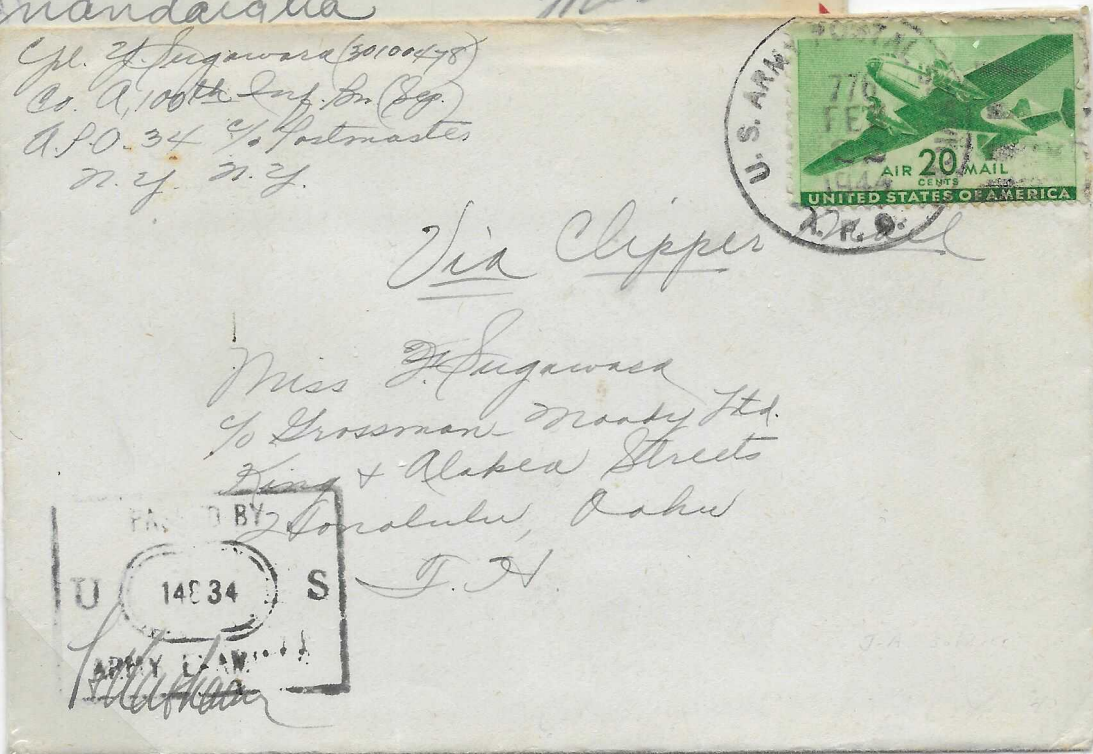 Canandaigua
Cpl. Y. Sugawara (30100478)
Co. A, 100th Inf. Bn (Sep.)
A.P.O. 34 c/o Postmaster
N.Y. N.Y.
U.S. ARMY POSTAL
776
FEB
1944
A.P.O.
AIR 20 MAIL
CENTS
UNITED STATES OF AMERICA
Via Clipper Mail
Miss F. Sugawara
c/o Grossman-Moody Ltd.
King & Alakea Streets
Honolulu, Oahu
T.H.
PASSED BY
U S
ARMY EXAMINER